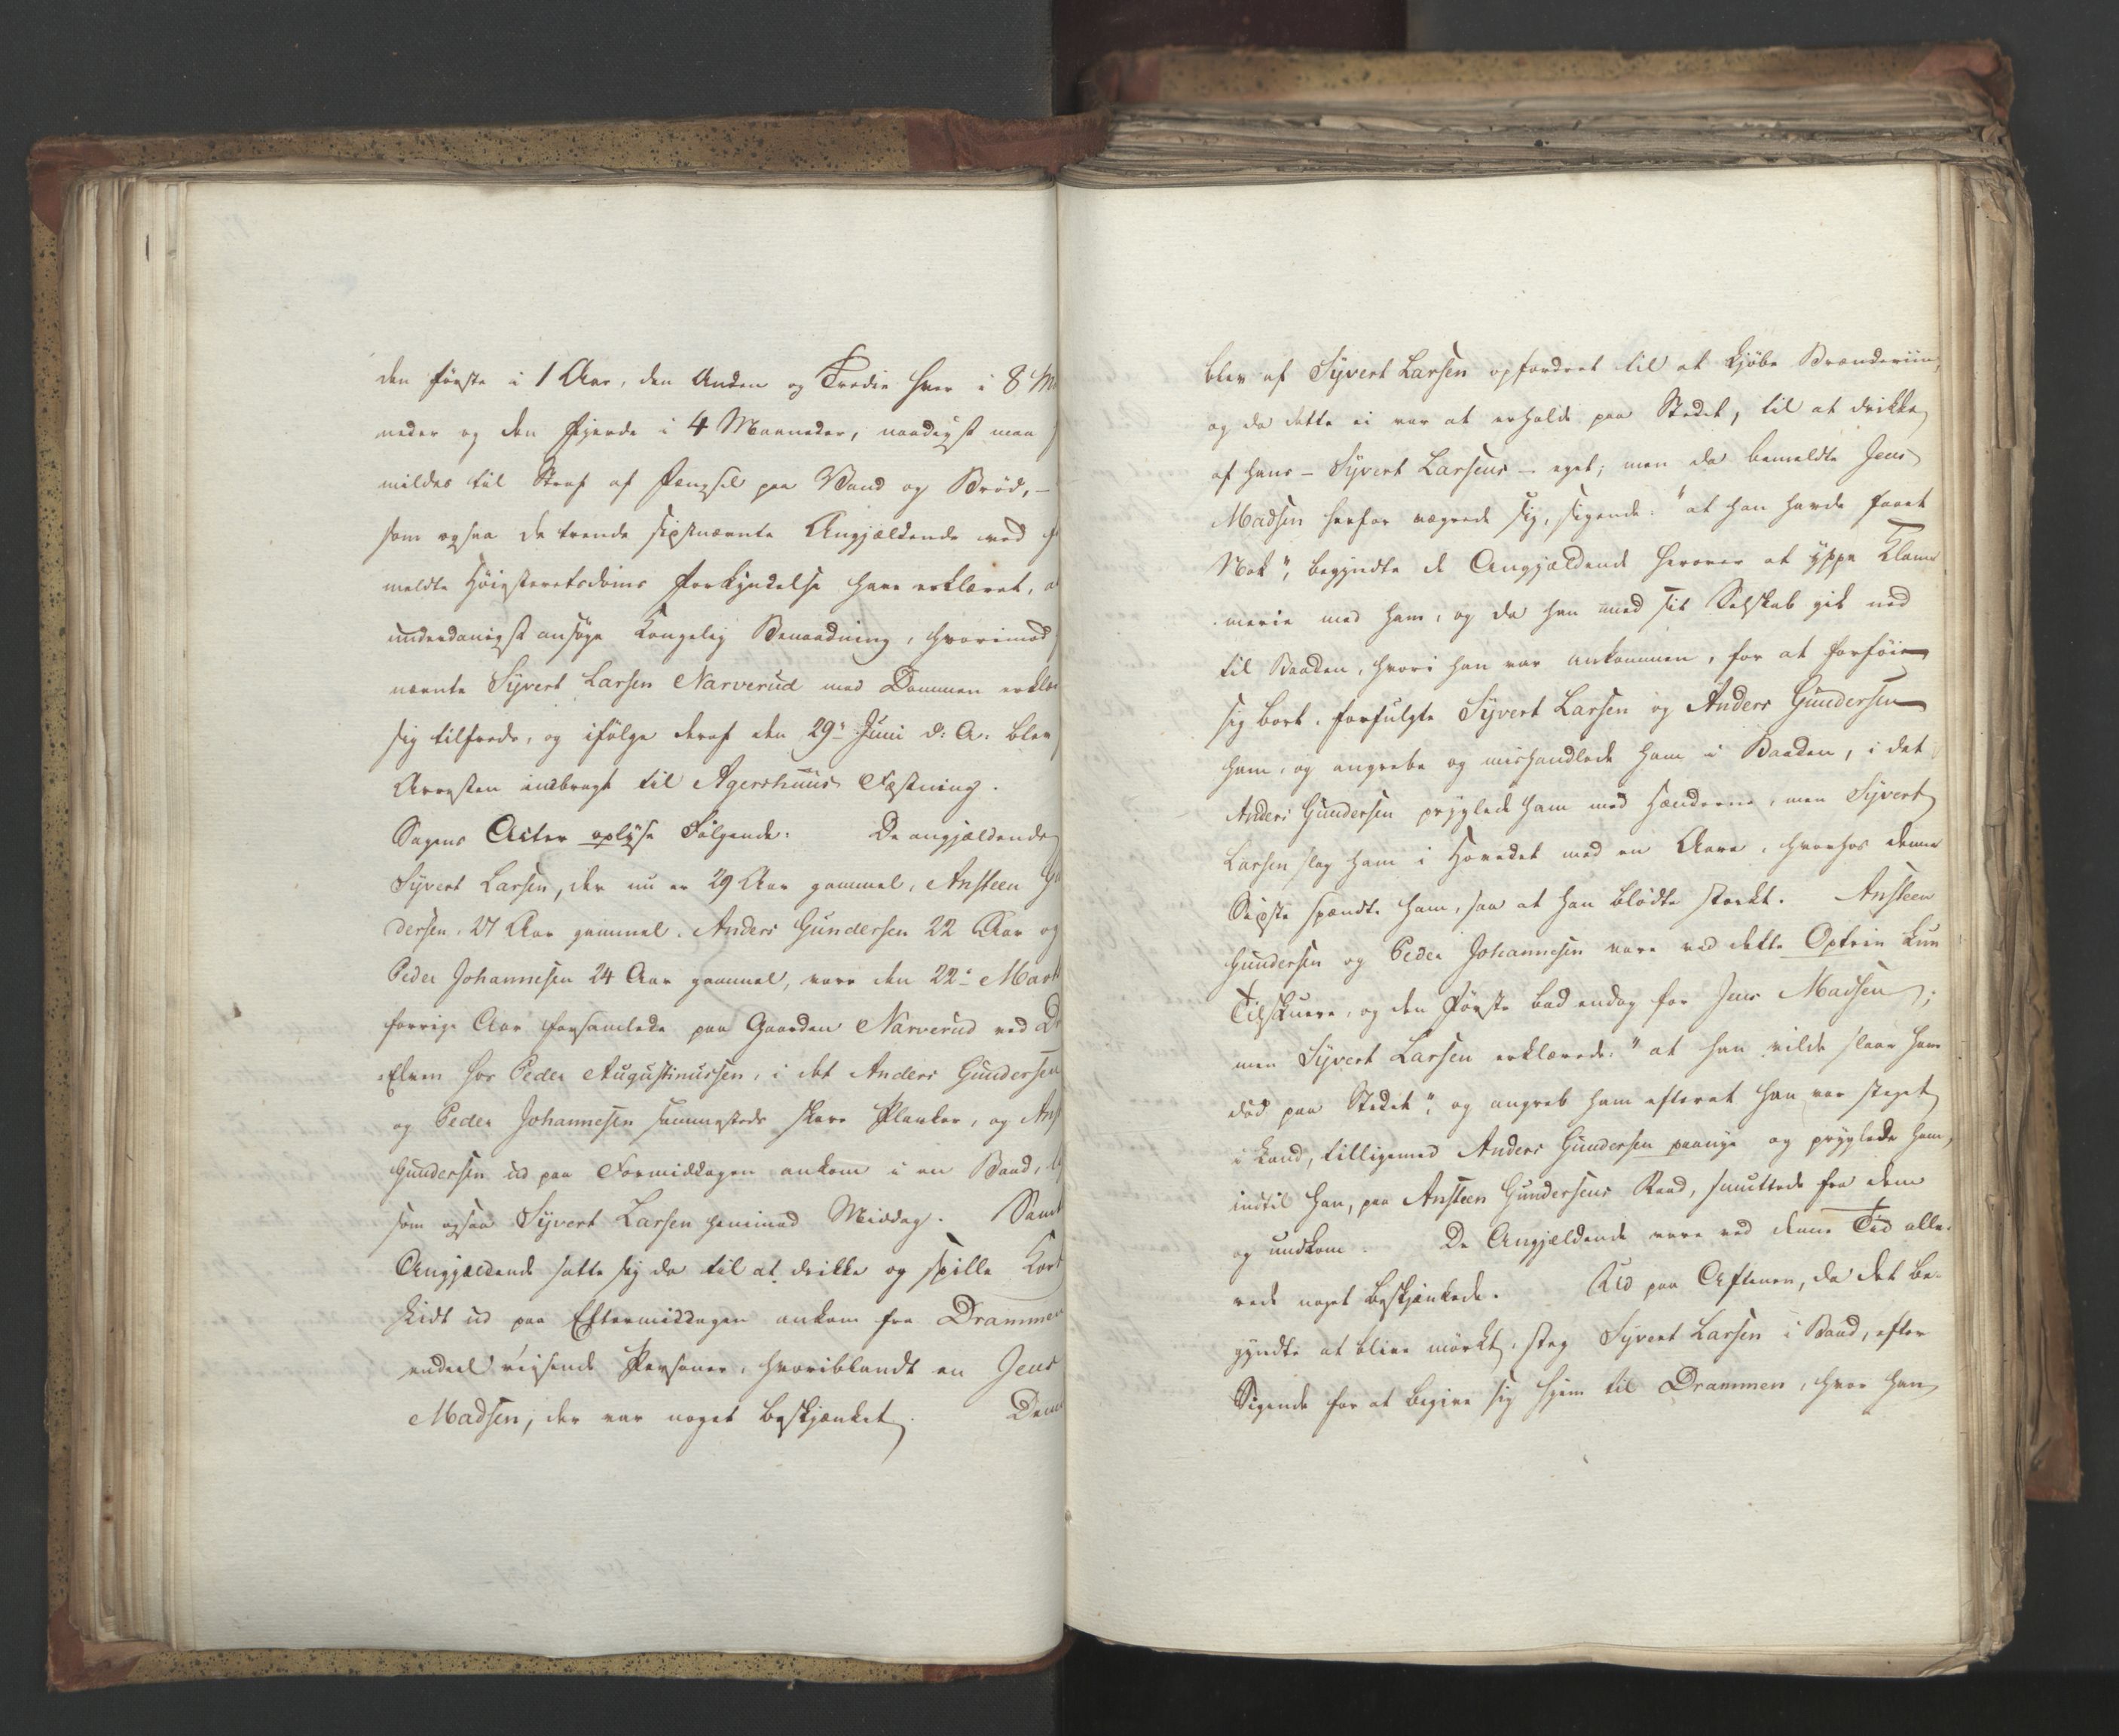 den første i 1 Aar, den Anden og Tredie hver i 8 M
neder og den fjerde i 4 Maaneder, naadigst maa
mildes til Straf af Fængsel paa Vand og Brød, –
som ogsaa de trende sidstnævnte Angjældende ved
meldte Høiesteretsdoms Forkyndelse have erklæret, a
underdanigst ansøge Kongelig Benaadning, hvorimod
nævnte Syvert Larsen Narverud med Dommen erklæ
sig tilfreds, og ifølge deraf den 29de Juni d: A: blev
Arresten indbragt til Agershuus Fæstning.
Sagens Acter oplyse Følgende: De angjældende
Syvert Larsen, der nu er 29 Aar gammel, Ansteen Gu
dersen, 27 Aar gammel, Anders Gundersen 22 Aar og
Peder Johannesen 24 Aar gammel, vare den 22de Marts
forrige Aar forsamlede paa Gaarden Narverud ved D
Elven hos Peder Augustinussen, i det Anders Gundersen
og Peder Johannesen sammesteds skare Planker, og Anst
Gundersen ud paa Formiddagen ankom i en Baad,
som ogsaa Syvert Larsen henimod Middag. Samt
Angjældende satte sig da til at drikke og spille Kort
Lidt ud paa Eftermiddagen ankom fra Drammen
endeel reisende Personer, hvoriblandt en Jens
Madsen, der var noget beskjænket. Denne
blev af Syvert Larsen opfordret til at kjøbe Brændeviin,
og da dette ei var at erholde paa Stedet, til at drikke
af hans – Syvert Larsens – eget; men da bemeldte Jens
Madsen herfor vægrede sig, sigende: "at han havde faaet
Nok", begyndte de Angjældende herover at yppe Klam
merie med ham, og da han med sit Selskab gik ned
til Baaden, hvori han var ankommen, for at forføie
sig bort, forfulgte Syvert Larsen og Anders Gundersen
ham, og angrebe og mishandlede ham i Baaden, i det
Anders Gundersen pryglede ham med Hænderne, men Syvert
Larsen slog ham i Hovedet med en Aare, hvorhos denne
Sidste spændte ham, saa at han blødte stærkt. Ansteen
Gundersen og Peder Johannesen vare ved dette Optrin kun
Tilskuere, og den Første bad endog for Jens Madsen;
men Syvert Larsen erklærede: "at han vilde slaae ham
død paa Stedet", og angreb ham efterat han var steget
i Land, tilligemed Anders Gundersen paanye og pryglede ham,
indtil han, paa Ansteen Gundersens Raad, smuttede fra dem
og undkom. De Angjældende vare ved denne Tid alle-
rede noget beskjænkede. Ud paa Aftenen, da det be-
gyndte at blive mørkt, steg Syvert Larsen i Baad, efter
Sigende for at begive sig hjem til Drammen, hvor han